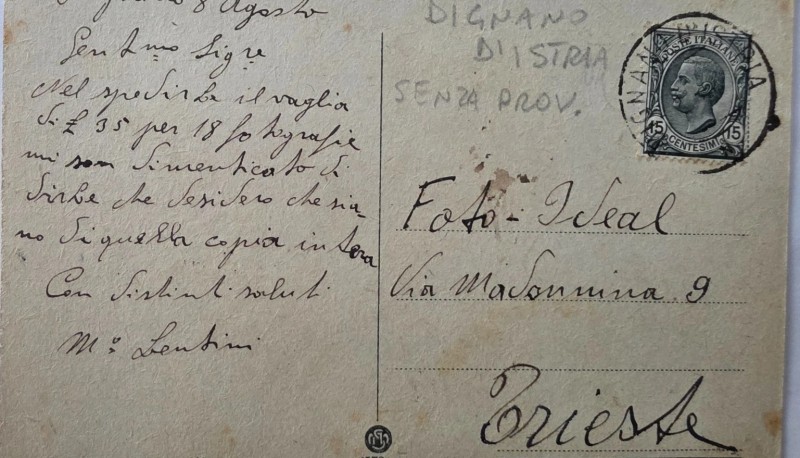 8 Agosto
Gent.mo Sig.re
Nel spedirle il vaglia
di £ 35 per 18 fotografie
mi son dimenticato di
dirle che desidero che sia-
no di quella copia intera
Con distinti saluti
M.o Lentini
DIGNANO
D'ISTRIA
SENZA PROV.
DIGNANO D'ISTRIA
POSTE ITALIANE
15 15
CENTESIMI
Foto-Ideal
Via Madonnina 9
Trieste